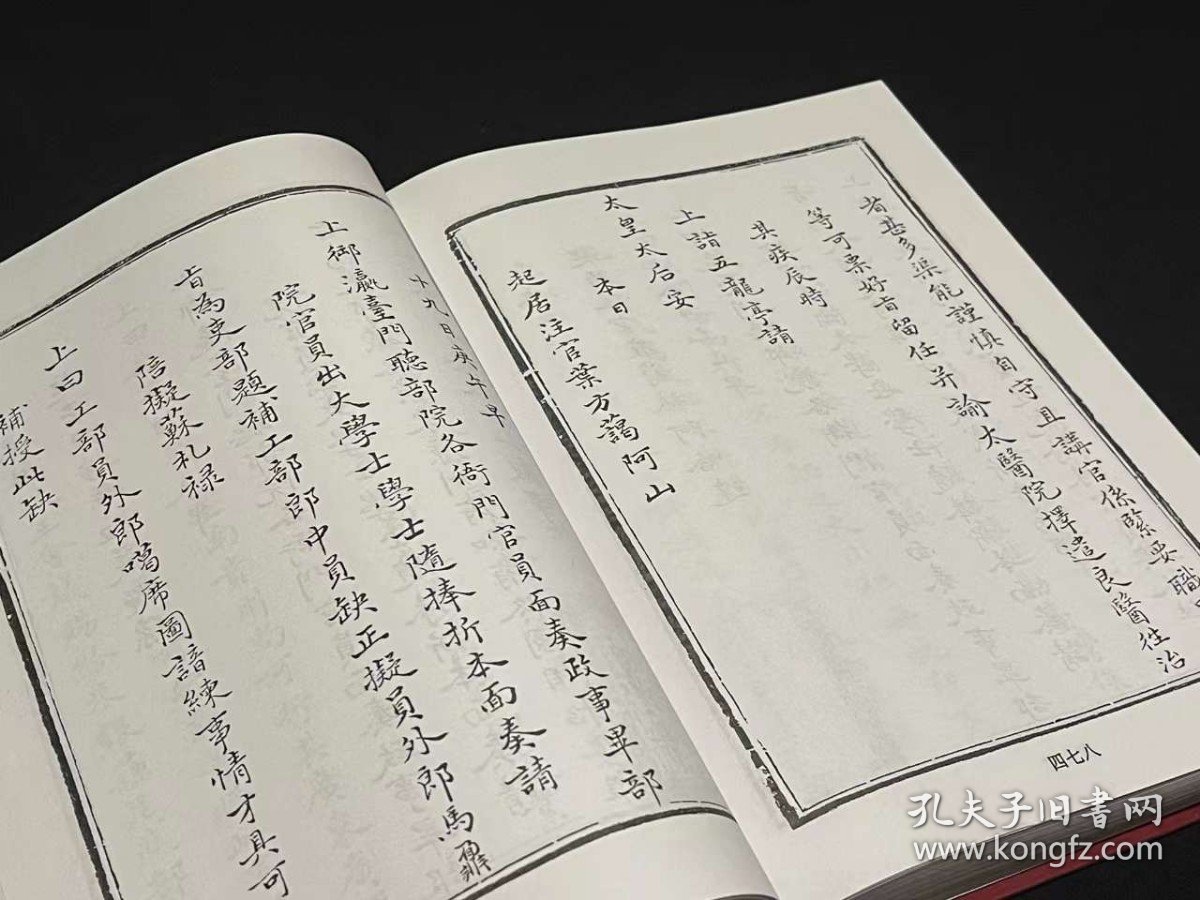 者甚多渠能謹慎自守且講官係緊要職
等可票好旨留任并諭太醫院擇遣良醫往治
其疾辰時
上詣五龍亭請
太皇太后安
本日
起居注官葉方藹阿山
四七八
十九日庚午早
上御瀛臺門聽部院各衙門官員面奏政事畢部
院官員出大學士學士隨捧折本面奏請
旨為吏部題補工部郎中員缺正擬員外郎馬
陪擬蘇札祿
上曰工部員外郎噶席圖諳練事情才具可
補授此缺
孔夫子旧书网
www.kongfz.com